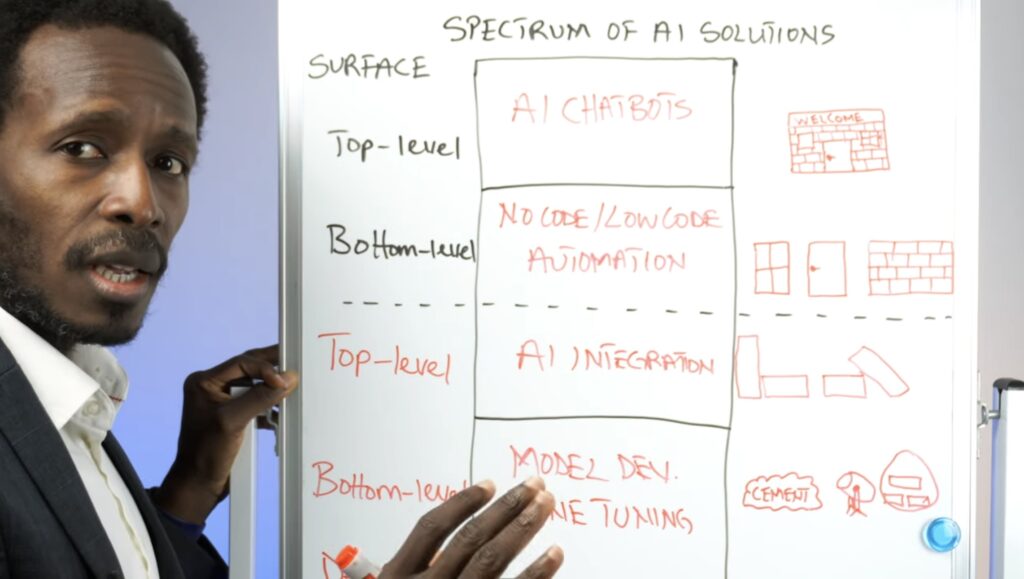 SPECTRUM OF AI SOLUTIONS
SURFACE
AI CHATBOTS
WELCOME
Top-level
NO CODE/LOW CODE
Bottom-level
AUTOMATION
Top-level
AI INTEGRATION
MODEL DEV.
Bottom-level
CEMENT
TUNING